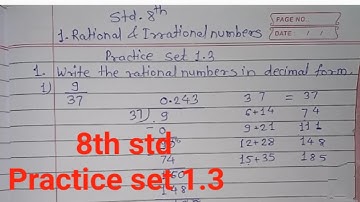 Std. 8th
PAGE NO.
DATE / /
1. Rational & Irrational numbers
Practice set 1.3
1. Write the rational numbers in decimal form.
1) 9/37
0.243
37) 9
0
74
148
3 7 = 37
6+14 74
9+21 111
12+28 148
15+35 185
8th std
Practice set 1.3